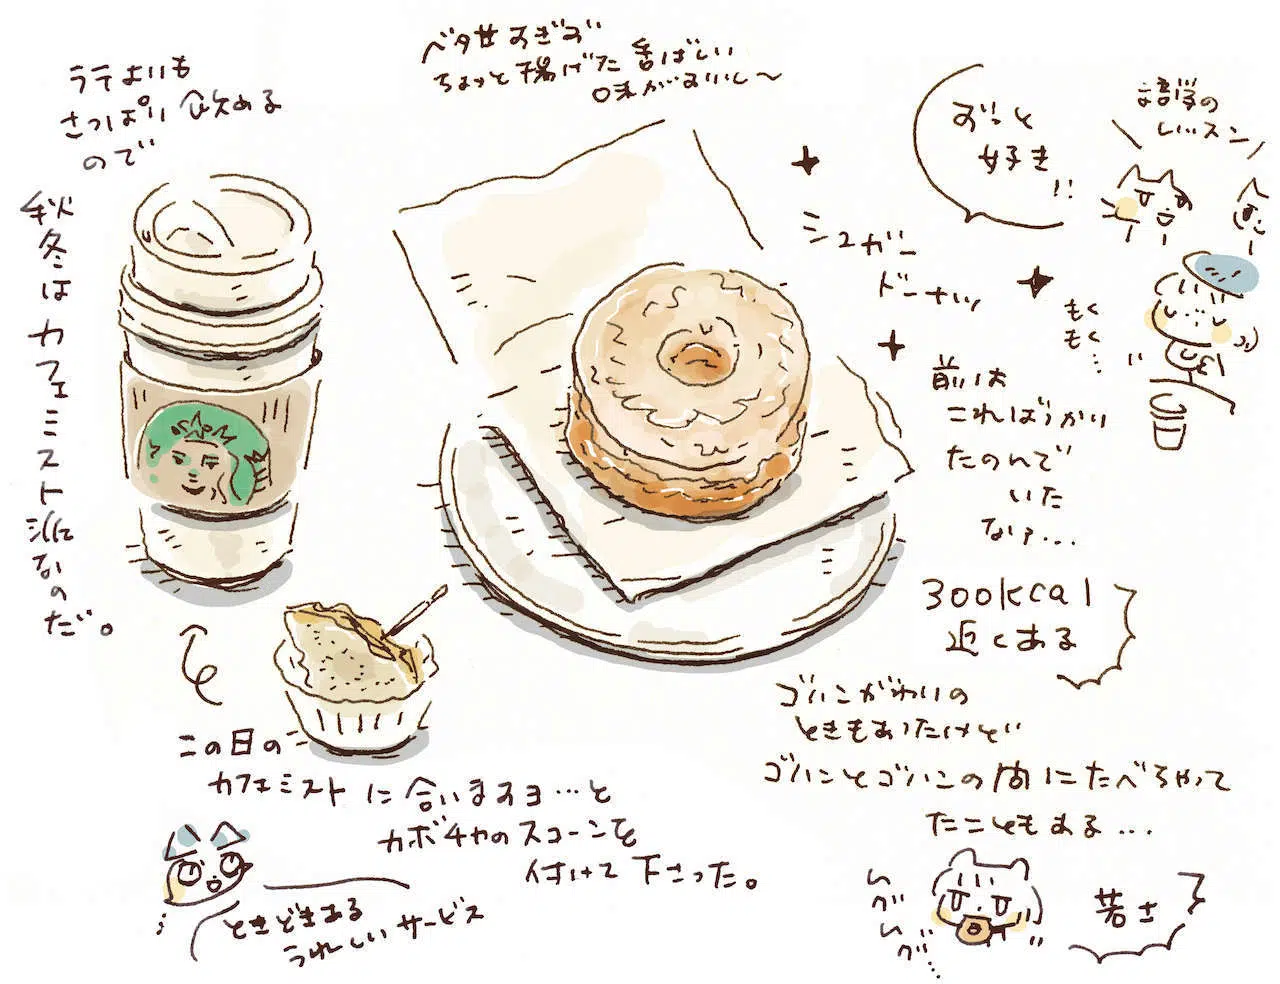 ラテよりも
さっぱり飲める
ので
秋冬はカフェミスト派なのだ。
ベタ甘すぎず
ちょっと揚げた香ばしい
味がおいし〜
シュガー
ドーナツ
ずっと
好き
!!
語学の
レッスン
もく
もく
…
前は
こればっかり
たのんで
いた
なァ…
300kcal
近くある
ゴハンがわりの
ときもあったけど
ゴハンとゴハンの間にたべちゃって
たこともある…
若さ
この日の
カフェミストに合いますヨ…と
カボチャのスコーンを
付けて下さった。
ときどきある
うれしいサービス